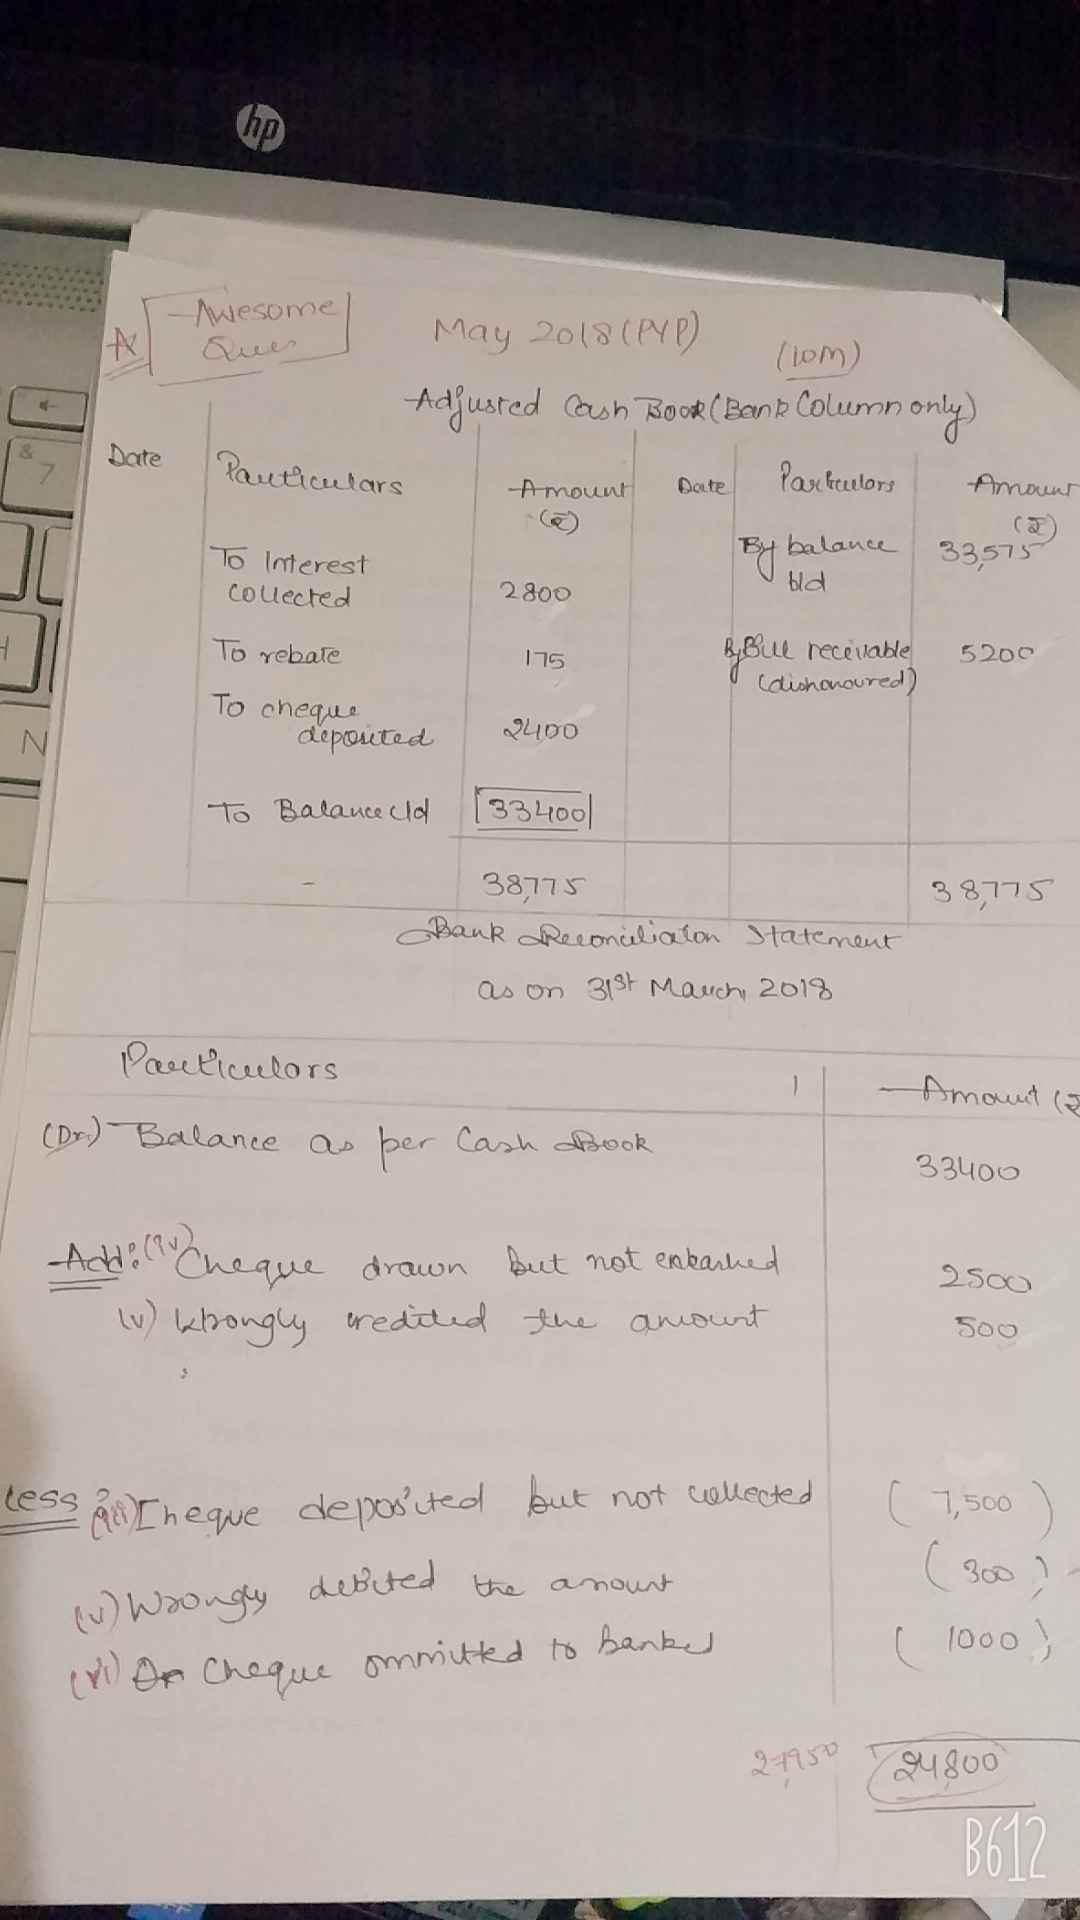 hp
Awesome
Ques
May 2018 (PYP)
(10M)
Adjusted Cash Book (Bank Column only)
Date Particulars Amount (₹) Date Particulars Amount (₹)
To Interest collected 2800 By balance b/d 33,575
To rebate 175 By Bill receivable (dishonoured) 5200
To cheque deposited 2400
To Balance c/d 33400
- 38,775 38,775
Bank Reconciliaton Statement
as on 31st March, 2018
Particulars Amount (₹
(Dr.) Balance as per Cash Book 33400
Add: (iv) Cheque drawn but not encashed 2500
(v) Wrongly credited the amount 500
Less: (iii) Cheque deposited but not collected (7,500)
(v) Wrongly debited the amount (300)
(vi) Cheque ommitted to banked (1000)
27,950 24,800
B612
&
7
N